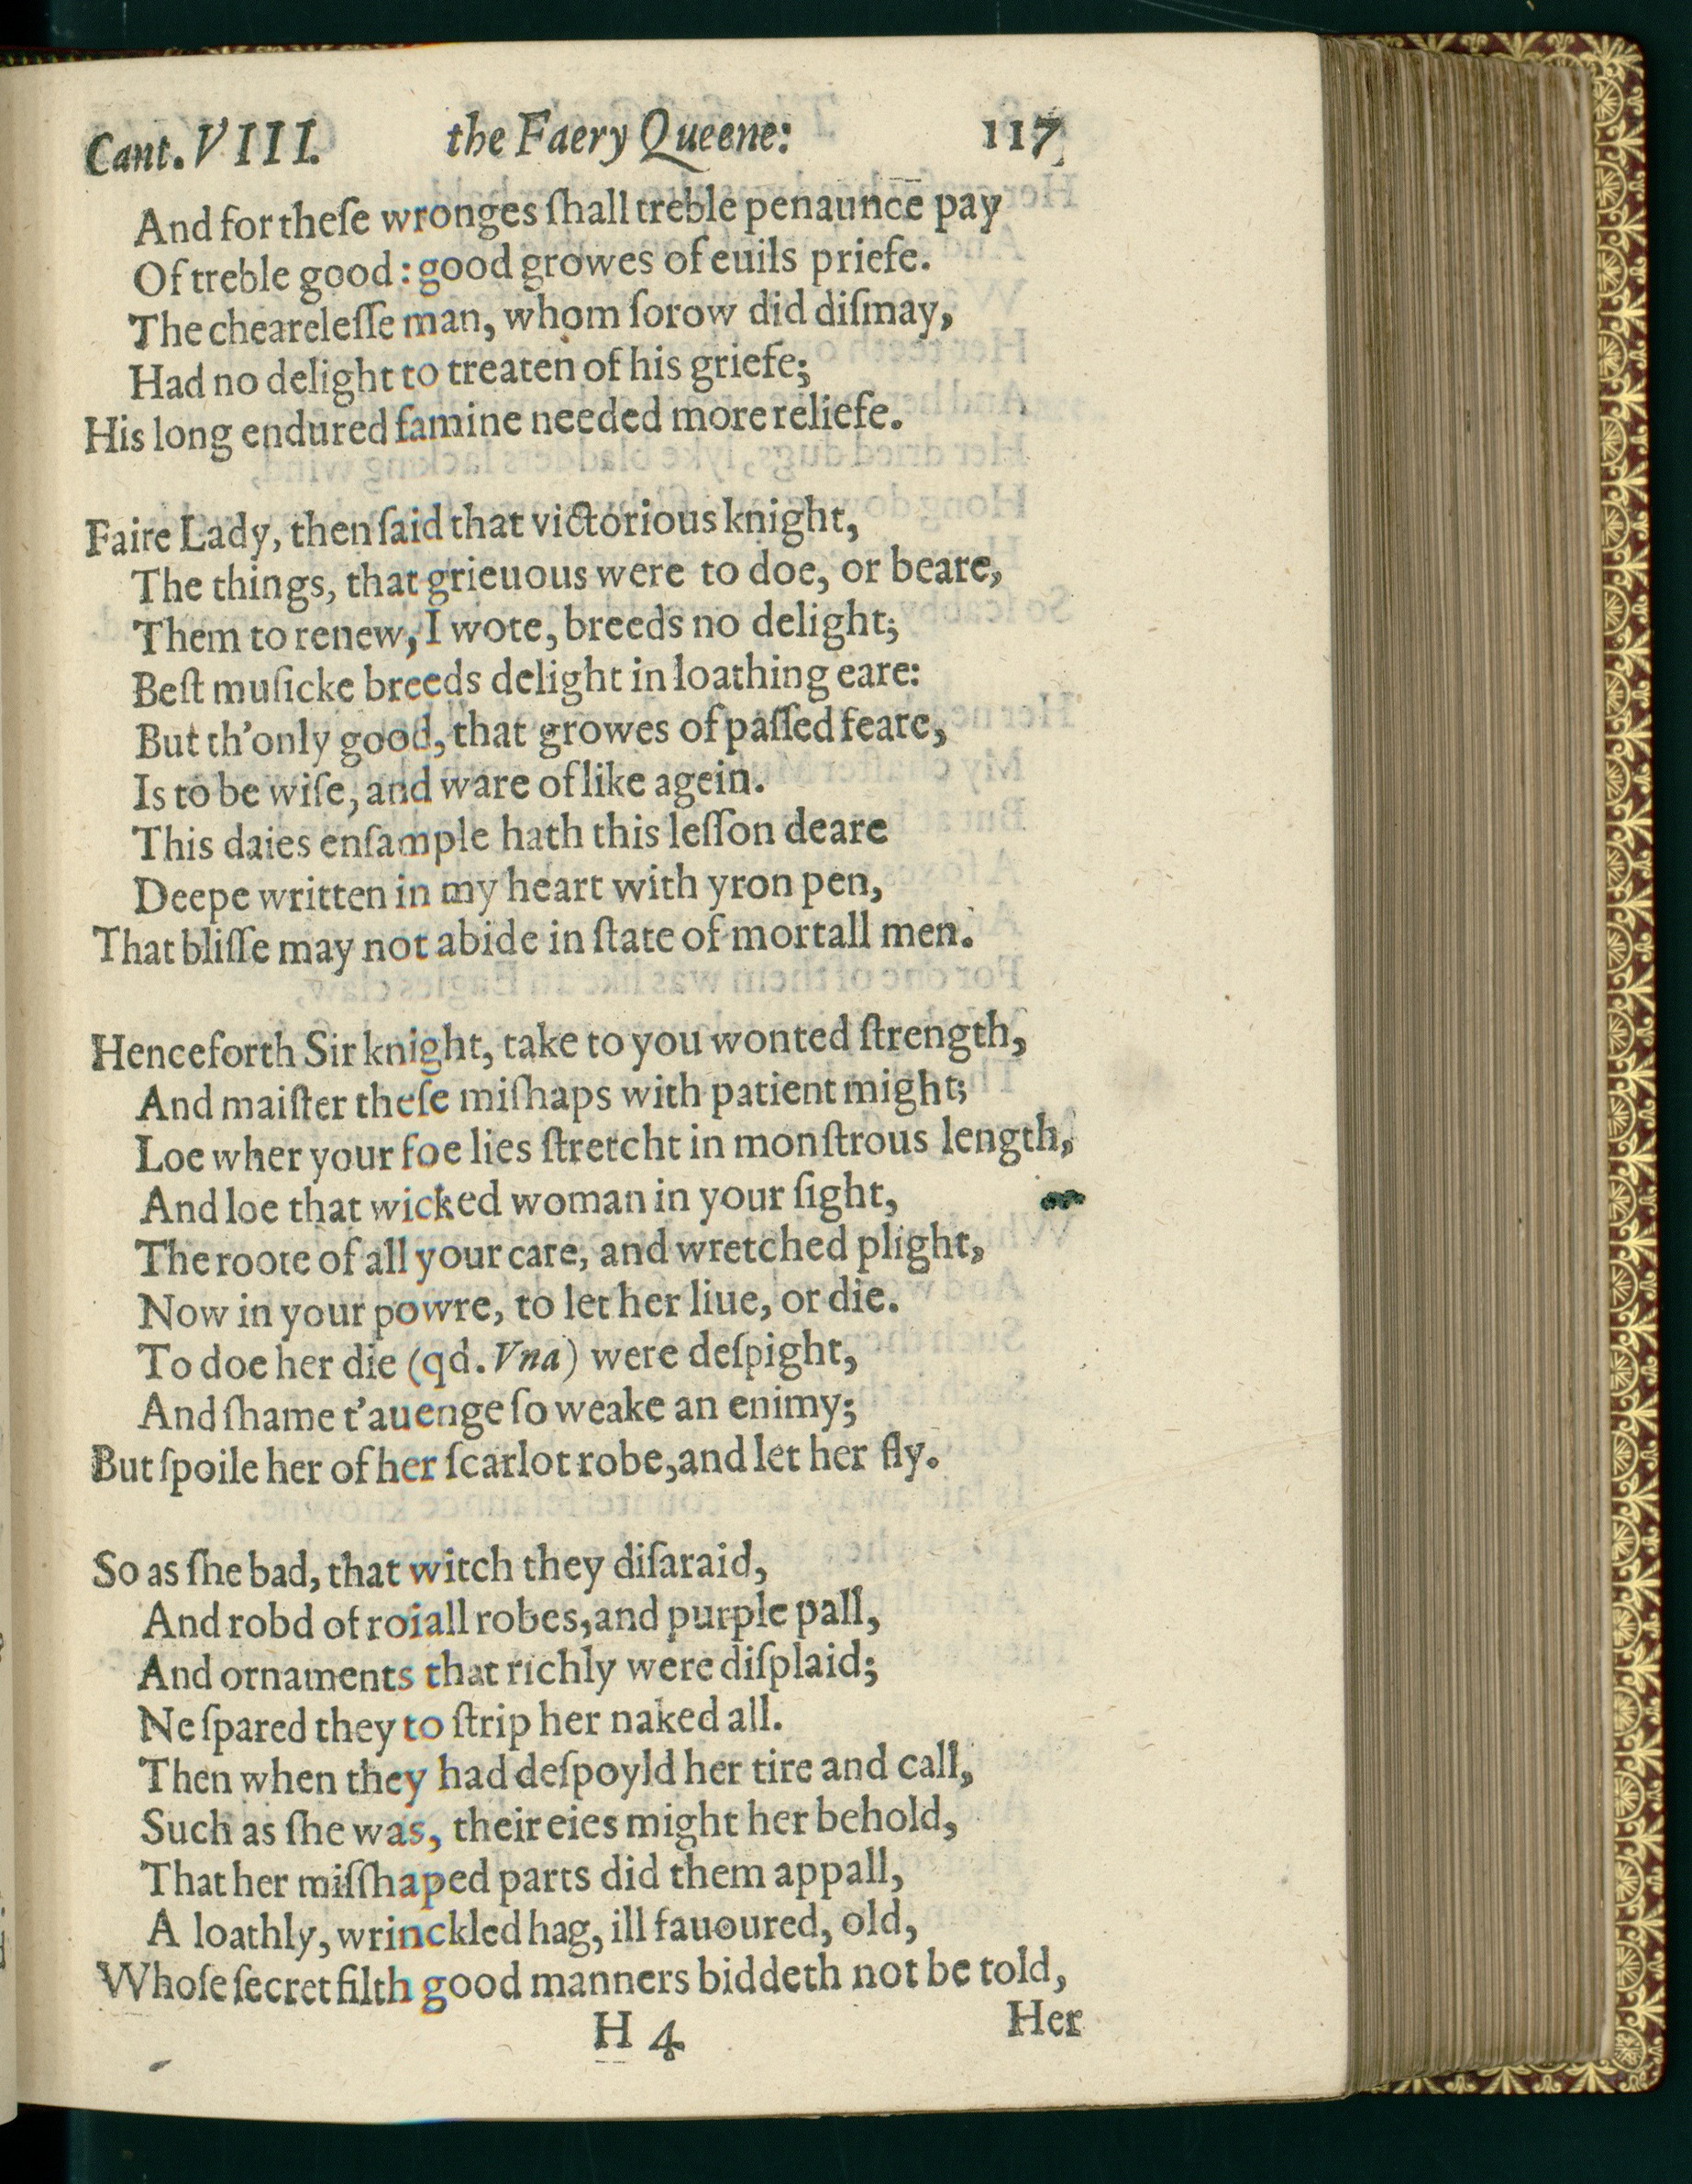 Cant. VIII. the Faery Queene: 117
And for theſe wronges ſhall treble penaunce pay
Of treble good : good growes of euils priefe.
The cheareleſſe man, whom ſorow did diſmay,
Had no delight to treaten of his griefe;
His long endured famine needed more reliefe.
Faire Lady, then ſaid that victorious knight,
The things, that grieuous were to doe, or beare,
Them to renew, I wote, breeds no delight;
Beſt muſicke breeds delight in loathing eare:
But th'only good, that growes of paſſed feare,
Is to be wiſe, and ware of like agein.
This daies enſample hath this leſſon deare
Deepe written in my heart with yron pen,
That bliſſe may not abide in ſtate of mortall men.
Henceforth Sir knight, take to you wonted ſtrength,
And maiſter theſe miſhaps with patient might;
Loe wher your foe lies ſtretcht in monſtrous length,
And loe that wicked woman in your ſight,
The roote of all your care, and wretched plight,
Now in your powre, to let her liue, or die.
To doe her die (qd. Vna) were deſpight,
And ſhame t'auenge ſo weake an enimy;
But ſpoile her of her ſcarlot robe, and let her fly.
So as ſhe bad, that witch they diſaraid,
And robd of roiall robes, and purple pall,
And ornaments that richly were diſplaid;
Ne ſpared they to ſtrip her naked all.
Then when they had deſpoyld her tire and call,
Such as ſhe was, their eies might her behold,
That her miſſhaped parts did them appall,
A loathly, wrinckled hag, ill fauoured, old,
Whoſe ſecret filth good manners biddeth not be told,
H 4 Her